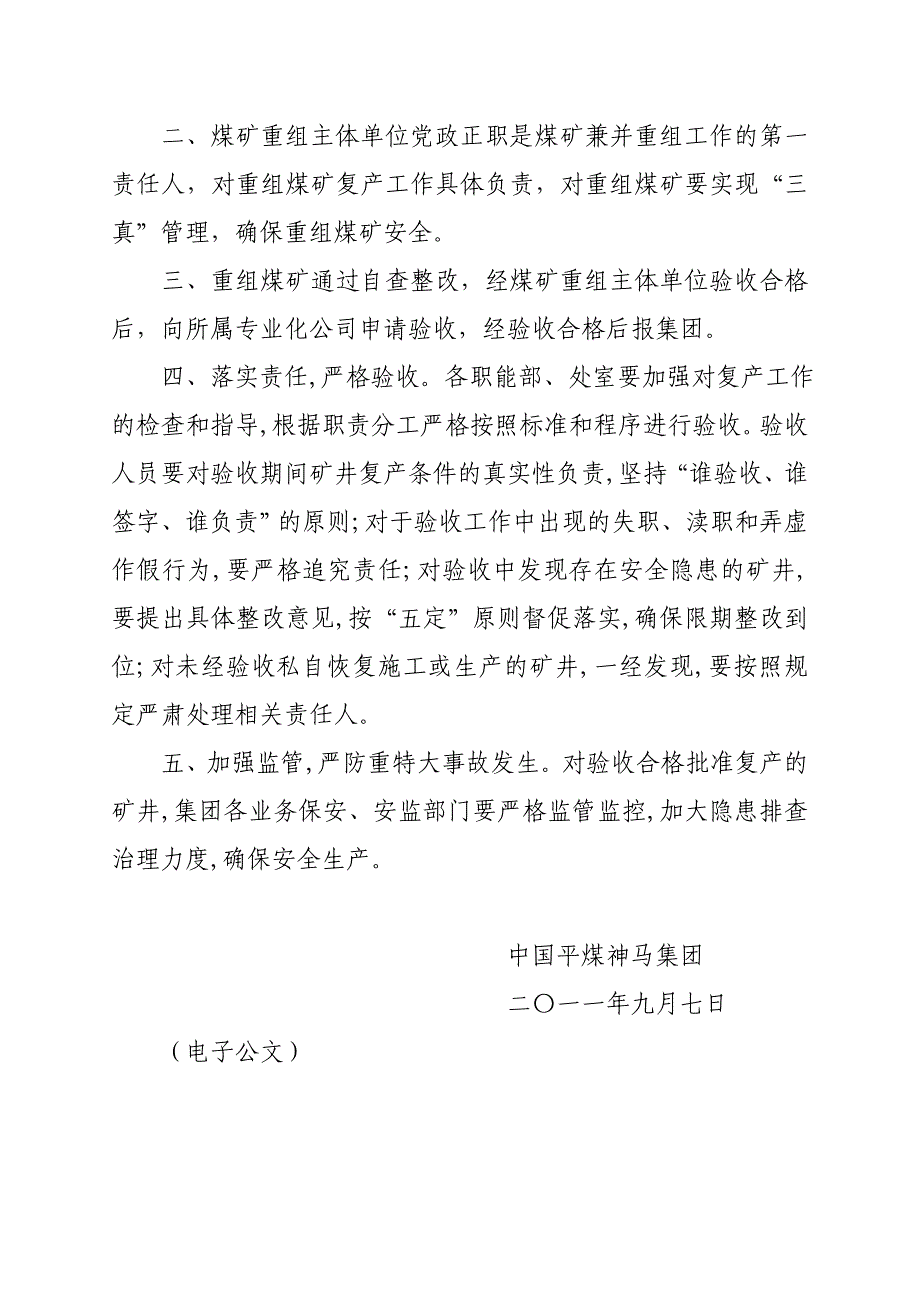 二、煤矿重组主体单位党政正职是煤矿兼并重组工作的第一
责任人，对重组煤矿复产工作具体负责，对重组煤矿要实现“三
真”管理，确保重组煤矿安全。
三、重组煤矿通过自查整改，经煤矿重组主体单位验收合格
后，向所属专业化公司申请验收，经验收合格后报集团。
四、落实责任,严格验收。各职能部、处室要加强对复产工作
的检查和指导,根据职责分工严格按照标准和程序进行验收。验收
人员要对验收期间矿井复产条件的真实性负责,坚持“谁验收、谁
签字、谁负责”的原则;对于验收工作中出现的失职、渎职和弄虚
作假行为,要严格追究责任;对验收中发现存在安全隐患的矿井,
要提出具体整改意见,按“五定”原则督促落实,确保限期整改到
位;对未经验收私自恢复施工或生产的矿井,一经发现,要按照规
定严肃处理相关责任人。
五、加强监管,严防重特大事故发生。对验收合格批准复产的
矿井,集团各业务保安、安监部门要严格监管监控,加大隐患排查
治理力度,确保安全生产。
中国平煤神马集团
二〇一一年九月七日
（电子公文）